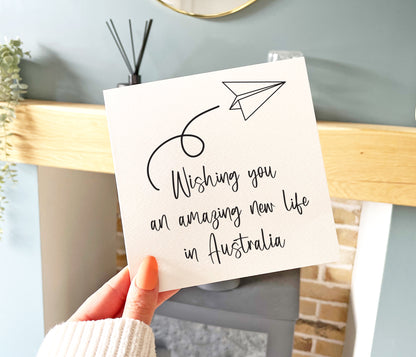 Wishing you
an amazing new life
in Australia